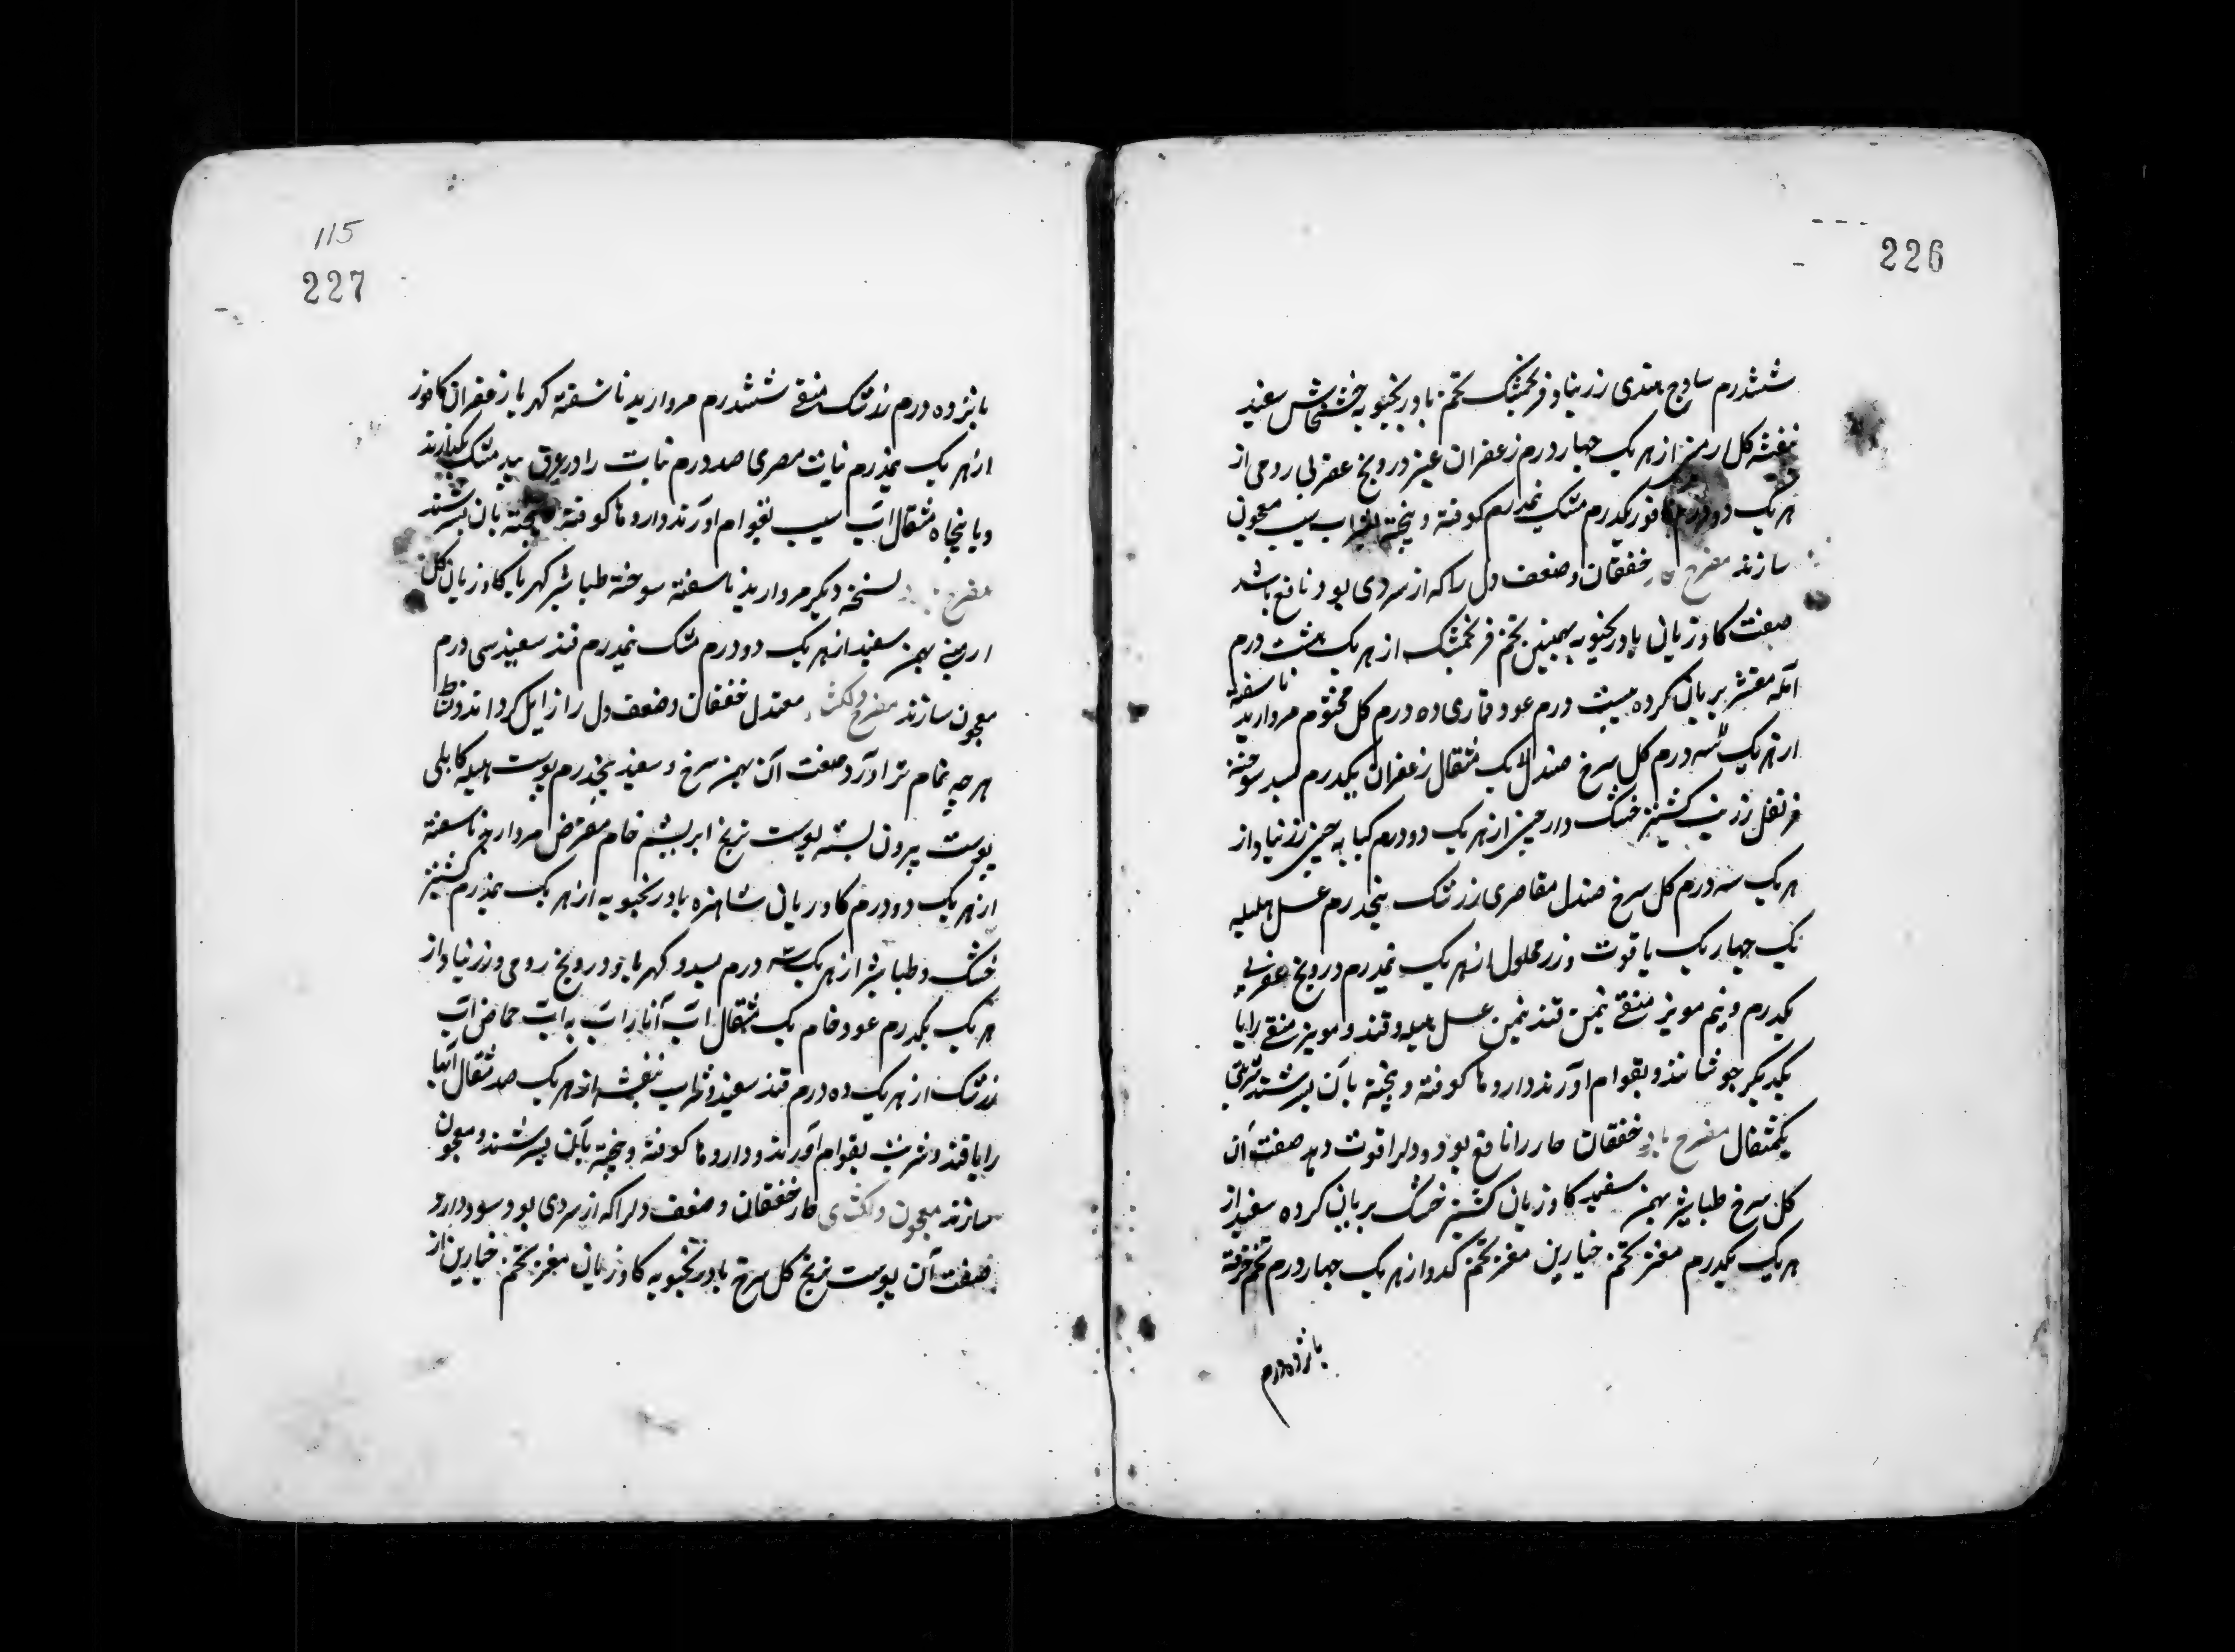 226
ششدرم ساذج هندی زرنباد فرنجمشک تخم بادرنجبویه خشخاش سفید
بنفشه کل ارمنی از هریک چهار درم زعفران عنبر درونج عقربی رومی از
هریک دودرم کافور یکدرم مشک نیمدرم کوفته و بیخته بشراب سیب معجون
سازند مفرح حار خفقان و ضعف دل را که از سردی بود نافع باشد
صفت کاوزبان بادرنجبویه بهمنین تخم فرنجمشک از هریک هشت درم
آمله مقشر بریان کرده بیست درم عود قماری ده درم کل مختوم مروارید ناسفته
از هریک سه درم کل سرخ صندل لاک مثقال زعفران یکدرم بسد سوخته
قرنفل زرنب کشنیز خشک دارچینی از هریک دودرم کبابه چینی زرنباد از
هریک سه درم کل سرخ صندل مقاصری زرشک پنجدرم عسل هلیله
یک چهاریک یاقوت و زر محلول از هریک نیمدرم درونج عقربی
یکدرم و نیم مویز منقی نیمن قند نیمن عسل هلیله و قند و مویز منقی را با
یکدیگر جوشانند و بقوام اورند داروها کوفته و بیخته بآن بسرشند شربتی
یکمثقال مفرح بارد خفقان حار را نافع بود و دلرا قوت دهد صفت آن
کل سرخ طباشیر بهمن سفید کاوزبان کشنیز خشک بریان کرده سفید از
هریک یکدرم مغز تخم خیارین مغز تخم کدو از هریک چهار درم تخم خرفه
پانزده درم
115
227
پانزده درم زرشک منقی ششدرم مروارید ناسفته کهربا زعفران کافور
از هریک نیمدرم نبات مصری صد درم نبات را در عرق بید مشک بکدازند
و با پنجاه مثقال اب سیب بقوام اورند داروها کوفته بیخته بان بسرشند
مفرح نسخه دیکر مروارید ناسفته سوخته طباشیر کهربا کاوزبان کل
ارمنی بهمن سفید از هریک دودرم مشک نیمدرم قند سفید سی درم
معجون سازند مفرح دلکشا معتدل خفقان و ضعف دل را زایل کرداند و نشاط
هرچه تمام تر ادرد صفت آن بهمن سرخ و سفید پنجدرم پوست هلیله کابلی
پوست بیرون پسته پوست ترنج ابریشم خام مقرض مروارید ناسفته
از هریک دودرم کاوزبان شاهتره بادرنجبویه از هریک نیمدرم کشنیز
خشک و طباشیر از هریک سه درم بسد و کهربا و درونج رومی و زرنباد از
هریک یکدرم عود خام یک مثقال اب آنار اب به اب حماض اب
زرشک از هریک ده درم قند سفید و شراب بنفشه از هریک صد مثقال آبها
را با قند و شربت بقوام آورند و داروها کوفته و بیخته بآن بسرشند و معجون
سازند معجون دلکشای حار خفقان و ضعف دلرا که از سردی بود سود دارد
صفت آن پوست ترنج کل سرخ بادرنجبویه کاوزبان مغز تخم خیارین از